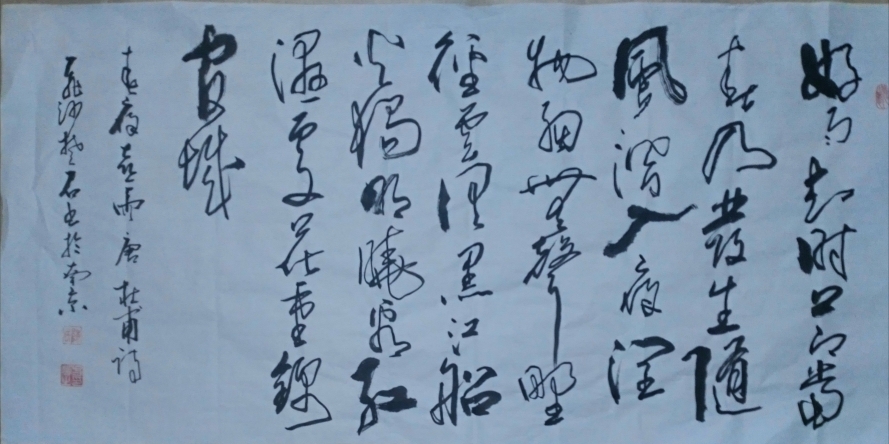 好雨知时節當
春乃發生隨
風潛入夜潤
物細無聲野
徑雲俱黑江船
火獨明曉看紅
濕處花重錦
官城
春夜喜雨唐杜甫詩
沙楚书於南京